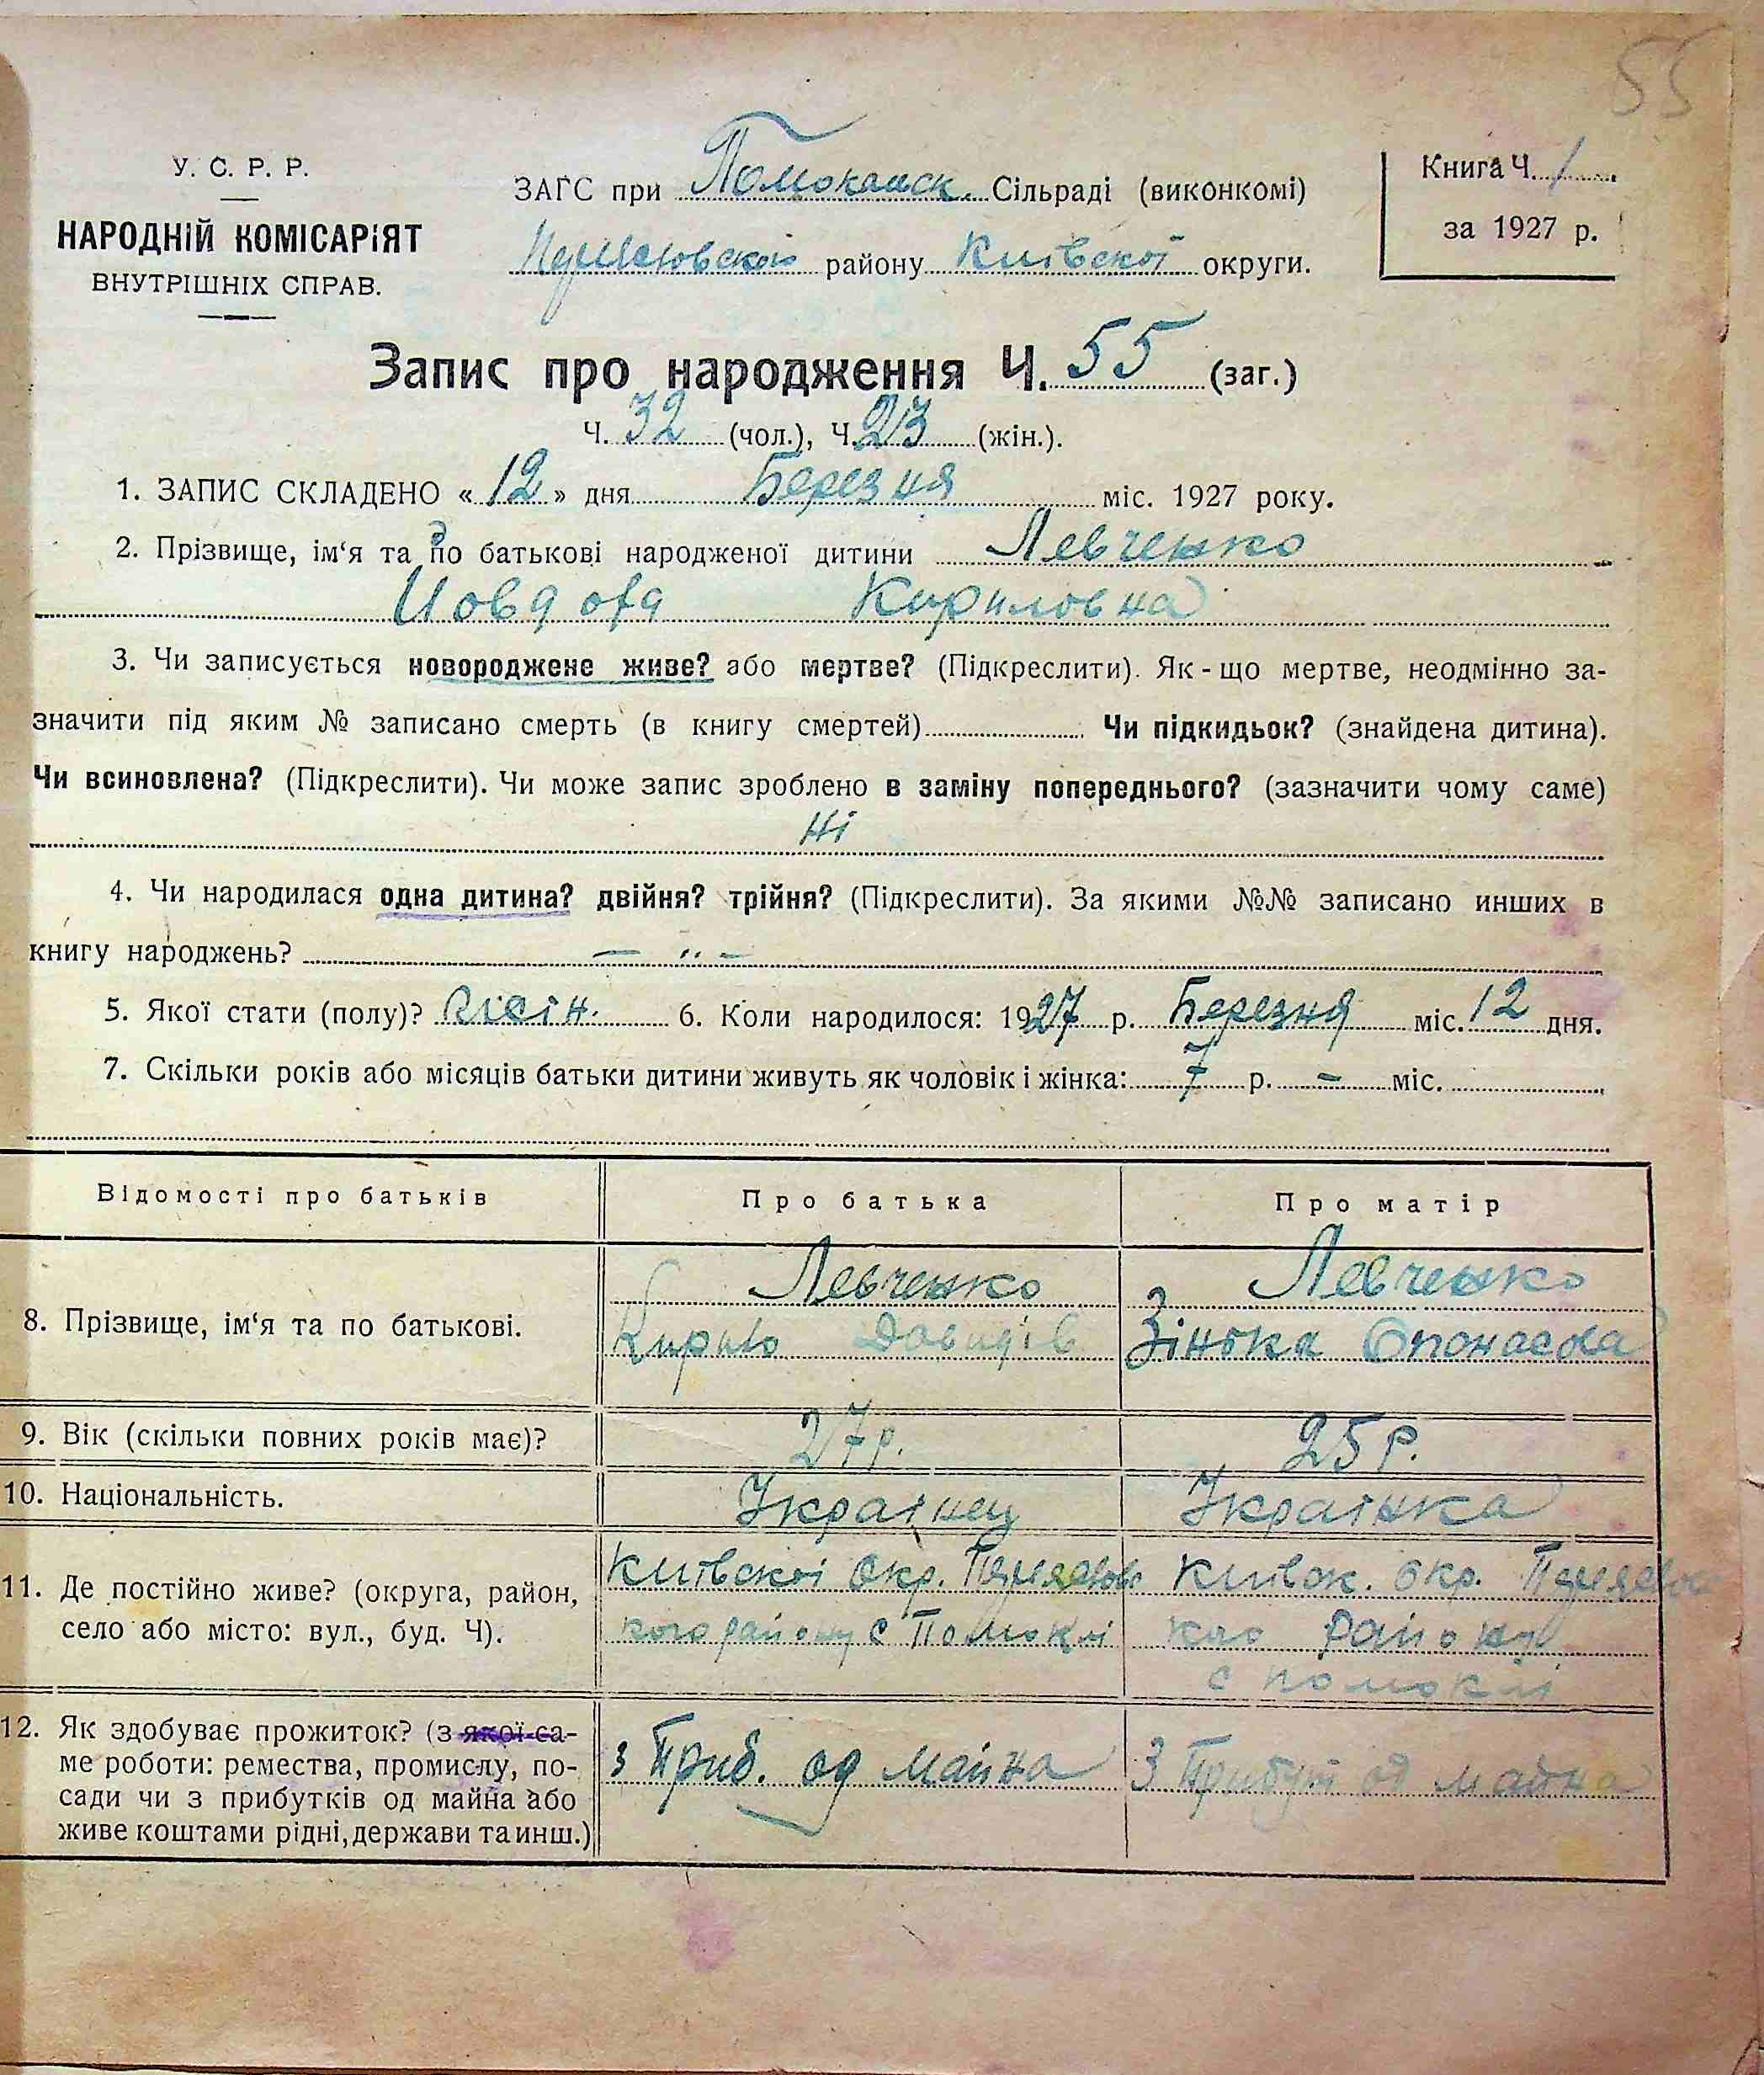 55
У. С. Р. Р.
НАРОДНІЙ КОМІСАРІЯТ
ВНУТРІШНІХ СПРАВ.
ЗАГС при Помокльск. Сільраді (виконкомі)
району Київскої округи.
Книга Ч. 1
за 1927 р.
Запис про народження Ч. 55 (заг.)
Ч. 32 (чол.), Ч. 23 (жін.).
1. ЗАПИС СКЛАДЕНО « 12 » дня Березня міс. 1927 року.
2. Прізвище, ім‘я та по батькові народженої дитини Левченко
Кириловна
3. Чи записується новороджене живе? або мертве? (Підкреслити). Як-що мертве, неодмінно за-
значити під яким № записано смерть (в книгу смертей) Чи підкидьок? (знайдена дитина).
Чи всиновлена? (Підкреслити). Чи може запис зроблено в заміну попереднього? (зазначити чому саме)
Ні
4. Чи народилася одна дитина? двійня? трійня? (Підкреслити). За якими №№ записано инших в
книгу народжень? — „ —
5. Якої стати (полу)? жін. 6. Коли народилося: 1927 р. Березня міс. 12 дня.
7. Скільки років або місяців батьки дитини живуть як чоловік і жінка: 7 р. – міс.
Відомості про батьків
Про батька
Про матір
8. Прізвище, ім‘я та по батькові.
Левченко
Кирило Давидів
Левченко
Зінька Опонасова
9. Вік (скільки повних років має)?
27р.
25 р.
10. Національність.
Українец
Українка
11. Де постійно живе? (округа, район,
село або місто: вул., буд. Ч).
Київскої Окр.
кого району с Помоклі
Київск. Окр.
району
с Помоклі
12. Як здобуває прожиток? (з якої са-
ме роботи: ремества, промислу, по-
сади чи з прибутків од майна або
живе коштами рідні, держави та инш.)
з Приб. од майна
З Прибут од майна